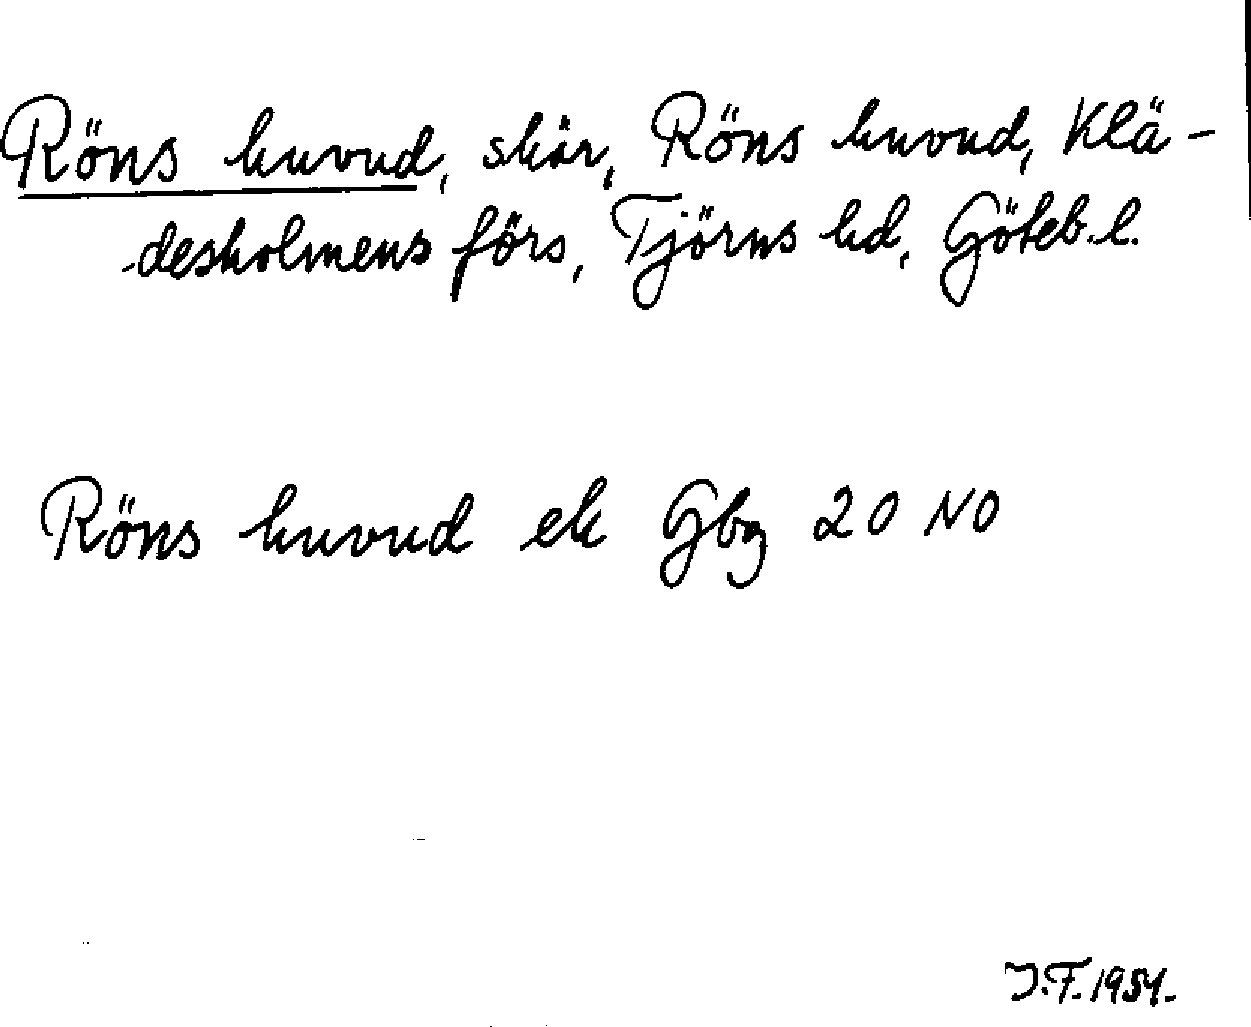 Röns huvud, skär, Röns huvud, Klä-
desholmens förs, Tjörns hd, Göteb.l.
Röns huvud ek Gbg 20 NO
J.F. 1954.